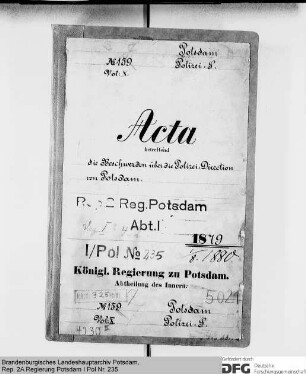 Potsdam
№ 139 Polizei-S.
Vol: X.
Acta
betreffend
die Beschwerden über die Polizei-Direction
von Potsdam.
Rep. 2 Reg. Potsdam
Abt. I
1879
I/Pol № 235 1880
Königl. Regierung zu Potsdam.
Abtheilung des Innern.
5021
№ 139 Potsdam
Vol: X Polizei-S.
Brandenburgisches Landeshauptarchiv Potsdam,
Rep. 2A Regierung Potsdam I Pol Nr. 235
Gefördert durch
DFG Deutsche
Forschungsgemeinschaft